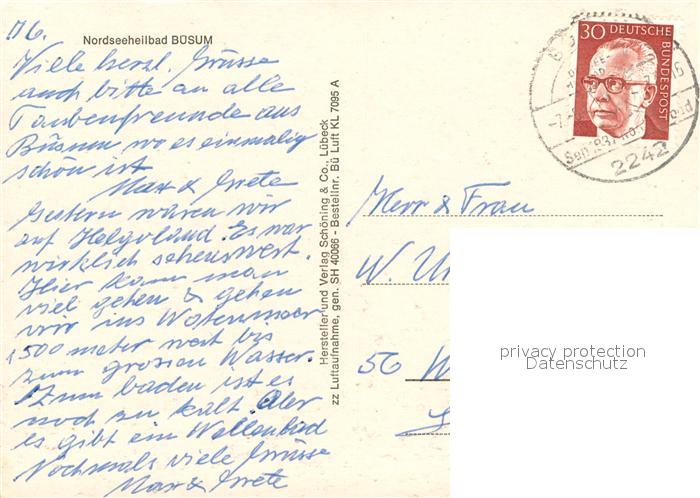 Nordseeheilbad BÜSUM
Viele herzl. Grüsse
auch bitte an alle
Taubenfreunde aus
Büsum wo es einmalig
schön ist
Max & Grete
Gestern waren wir
auf Helgoland. Es war
wirklich sehenswert.
Hier kann man
viel gehen & gehen
wir ins
1500 meter weit bis
zum grossen Wasser.
Zum baden ist es
noch zu kalt. Aber
es gibt ein Wellenbad
Nochmals viele Grüsse
Max & Grete
Hersteller und Verlag Schöning & Co., Lübeck
zz Luftaufnahme, gen. SH 40066 - Bestellnr. Bü Luft KL 7095 A
30 DEUTSCHE
BUNDESPOST
2242
Herr & Frau
W
56 W
privacy protection
Datenschutz